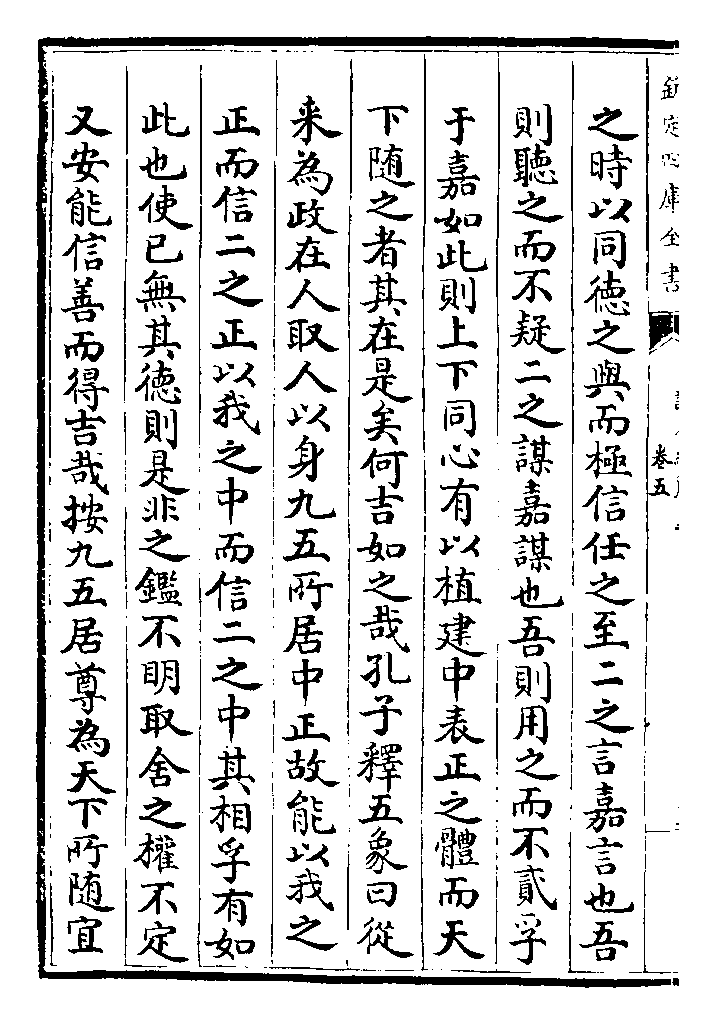 欽定四庫全書
卷五
之時以同徳之與而極信任之至二之言嘉言也吾
則聽之而不疑二之謀嘉謀也吾則用之而不貳孚
于嘉如此則上下同心有以植建中表正之體而天
下随之者其在是矣何吉如之哉孔子釋五象曰從
来為政在人取人以身九五所居中正故能以我之
正而信二之正以我之中而信二之中其相孚有如
此也使已無其徳則是非之鑑不明取舍之權不定
又安能信善而得吉哉按九五居尊為天下所随宜